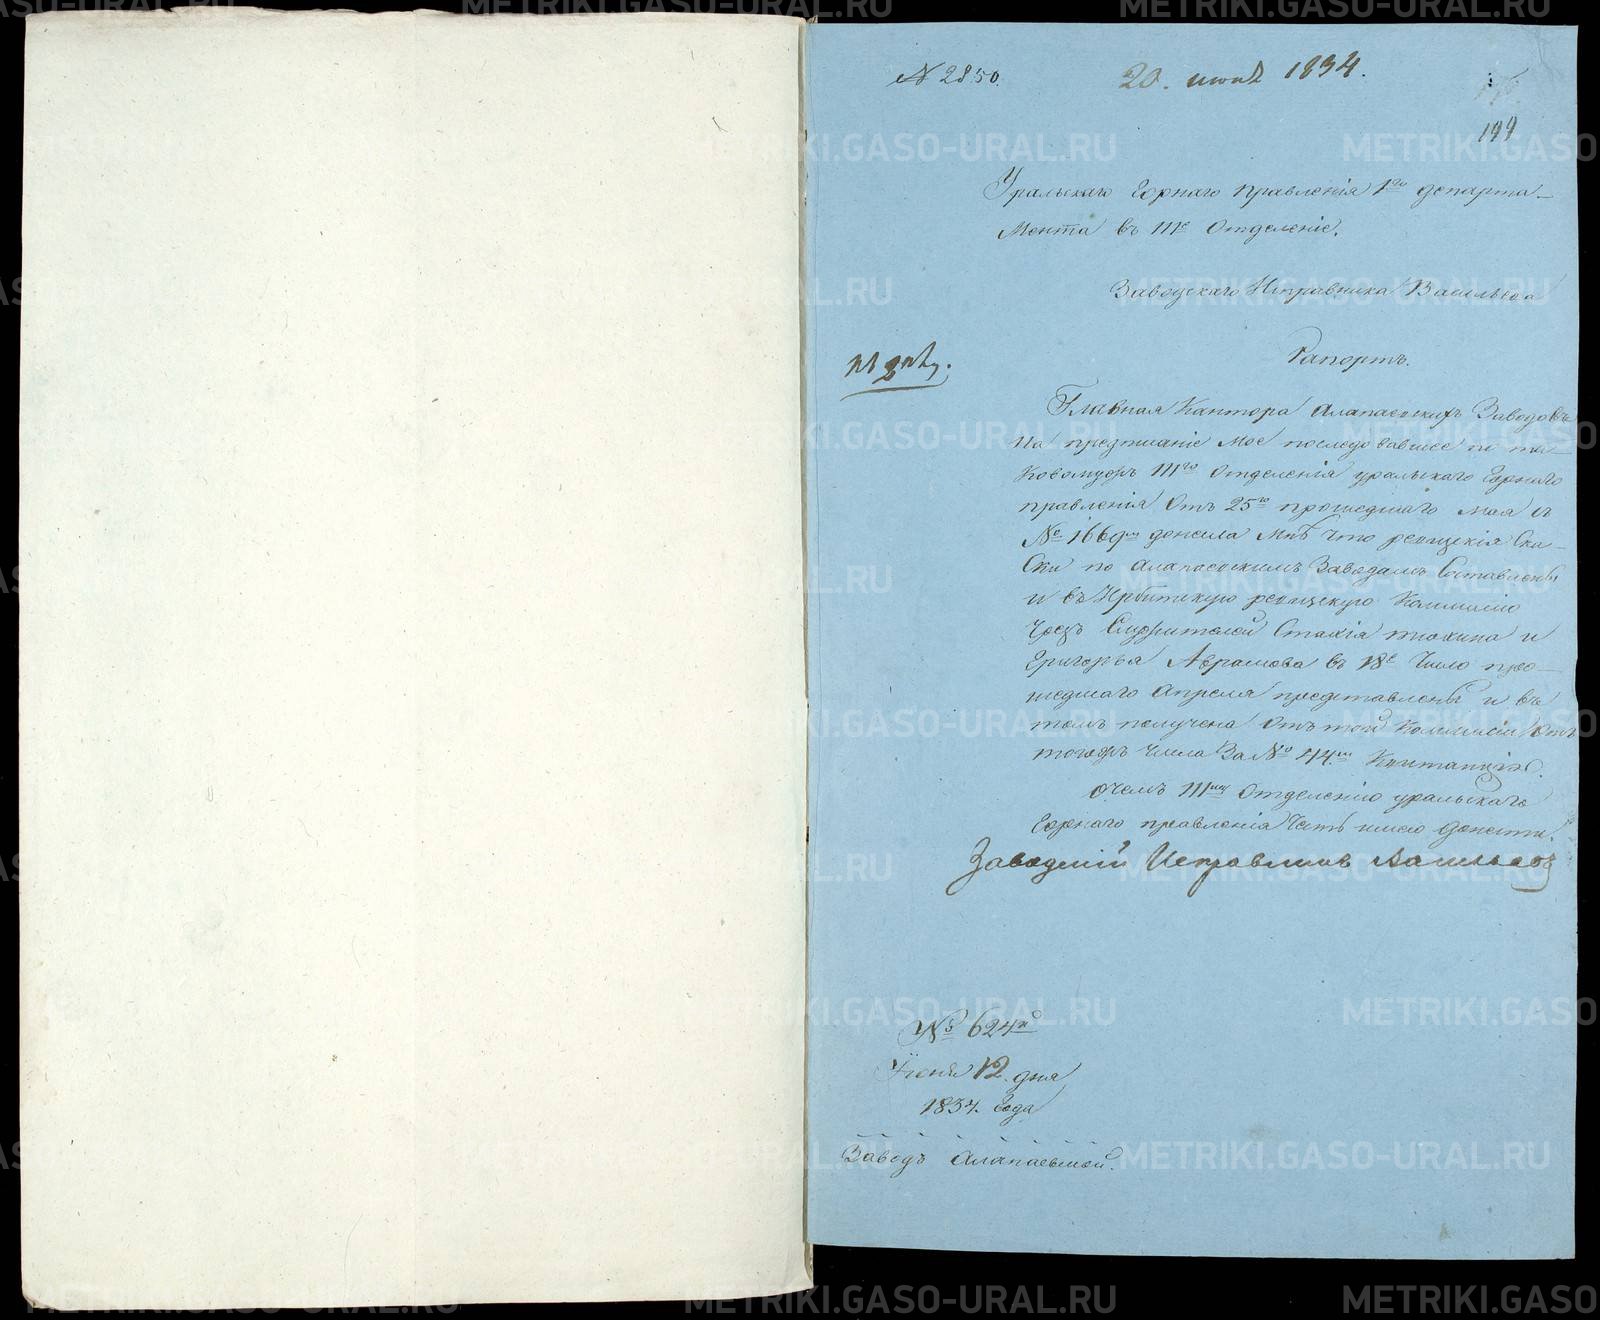 № 2850.
20. июня 1834.
199
Уральскаго Горнаго Правленія 1го департа-
мента въ IIIе Отделеніе.
Заводскаго Исправника Васильева
Рапортъ.
Главная Кантора Алапаевскихъ Заводовъ
на предписаніе мое последовавшее по та-
ковомужъ IIIго Отделенія уральскаго Горнаго
правленія Отъ 25го прошедшаго мая съ
№ 1669мъ донесла мнѣ что ревизскія Ска-
ски по Алапаевскимъ Заводамъ Составлены
и въ Ирбитскую ревизскую Коммисію
чрезъ Служителей Стахія тюкина и
Григорья Аврамова въ 18е число про-
шедшаго Апреля представлены и въ
томъ получена Отъ той Коммисіи отъ
тогожъ числа За № 44.мъ Квитанція.
Очемъ IIIму Отделенію уральскаго
Горнаго правленія Честь имею донести.
Заводский Исправникъ Васильевъ
№ 624го
Іюня 12 дня
1834. года
Заводъ Алапаевской.
METRIKI.GASO-URAL.RU